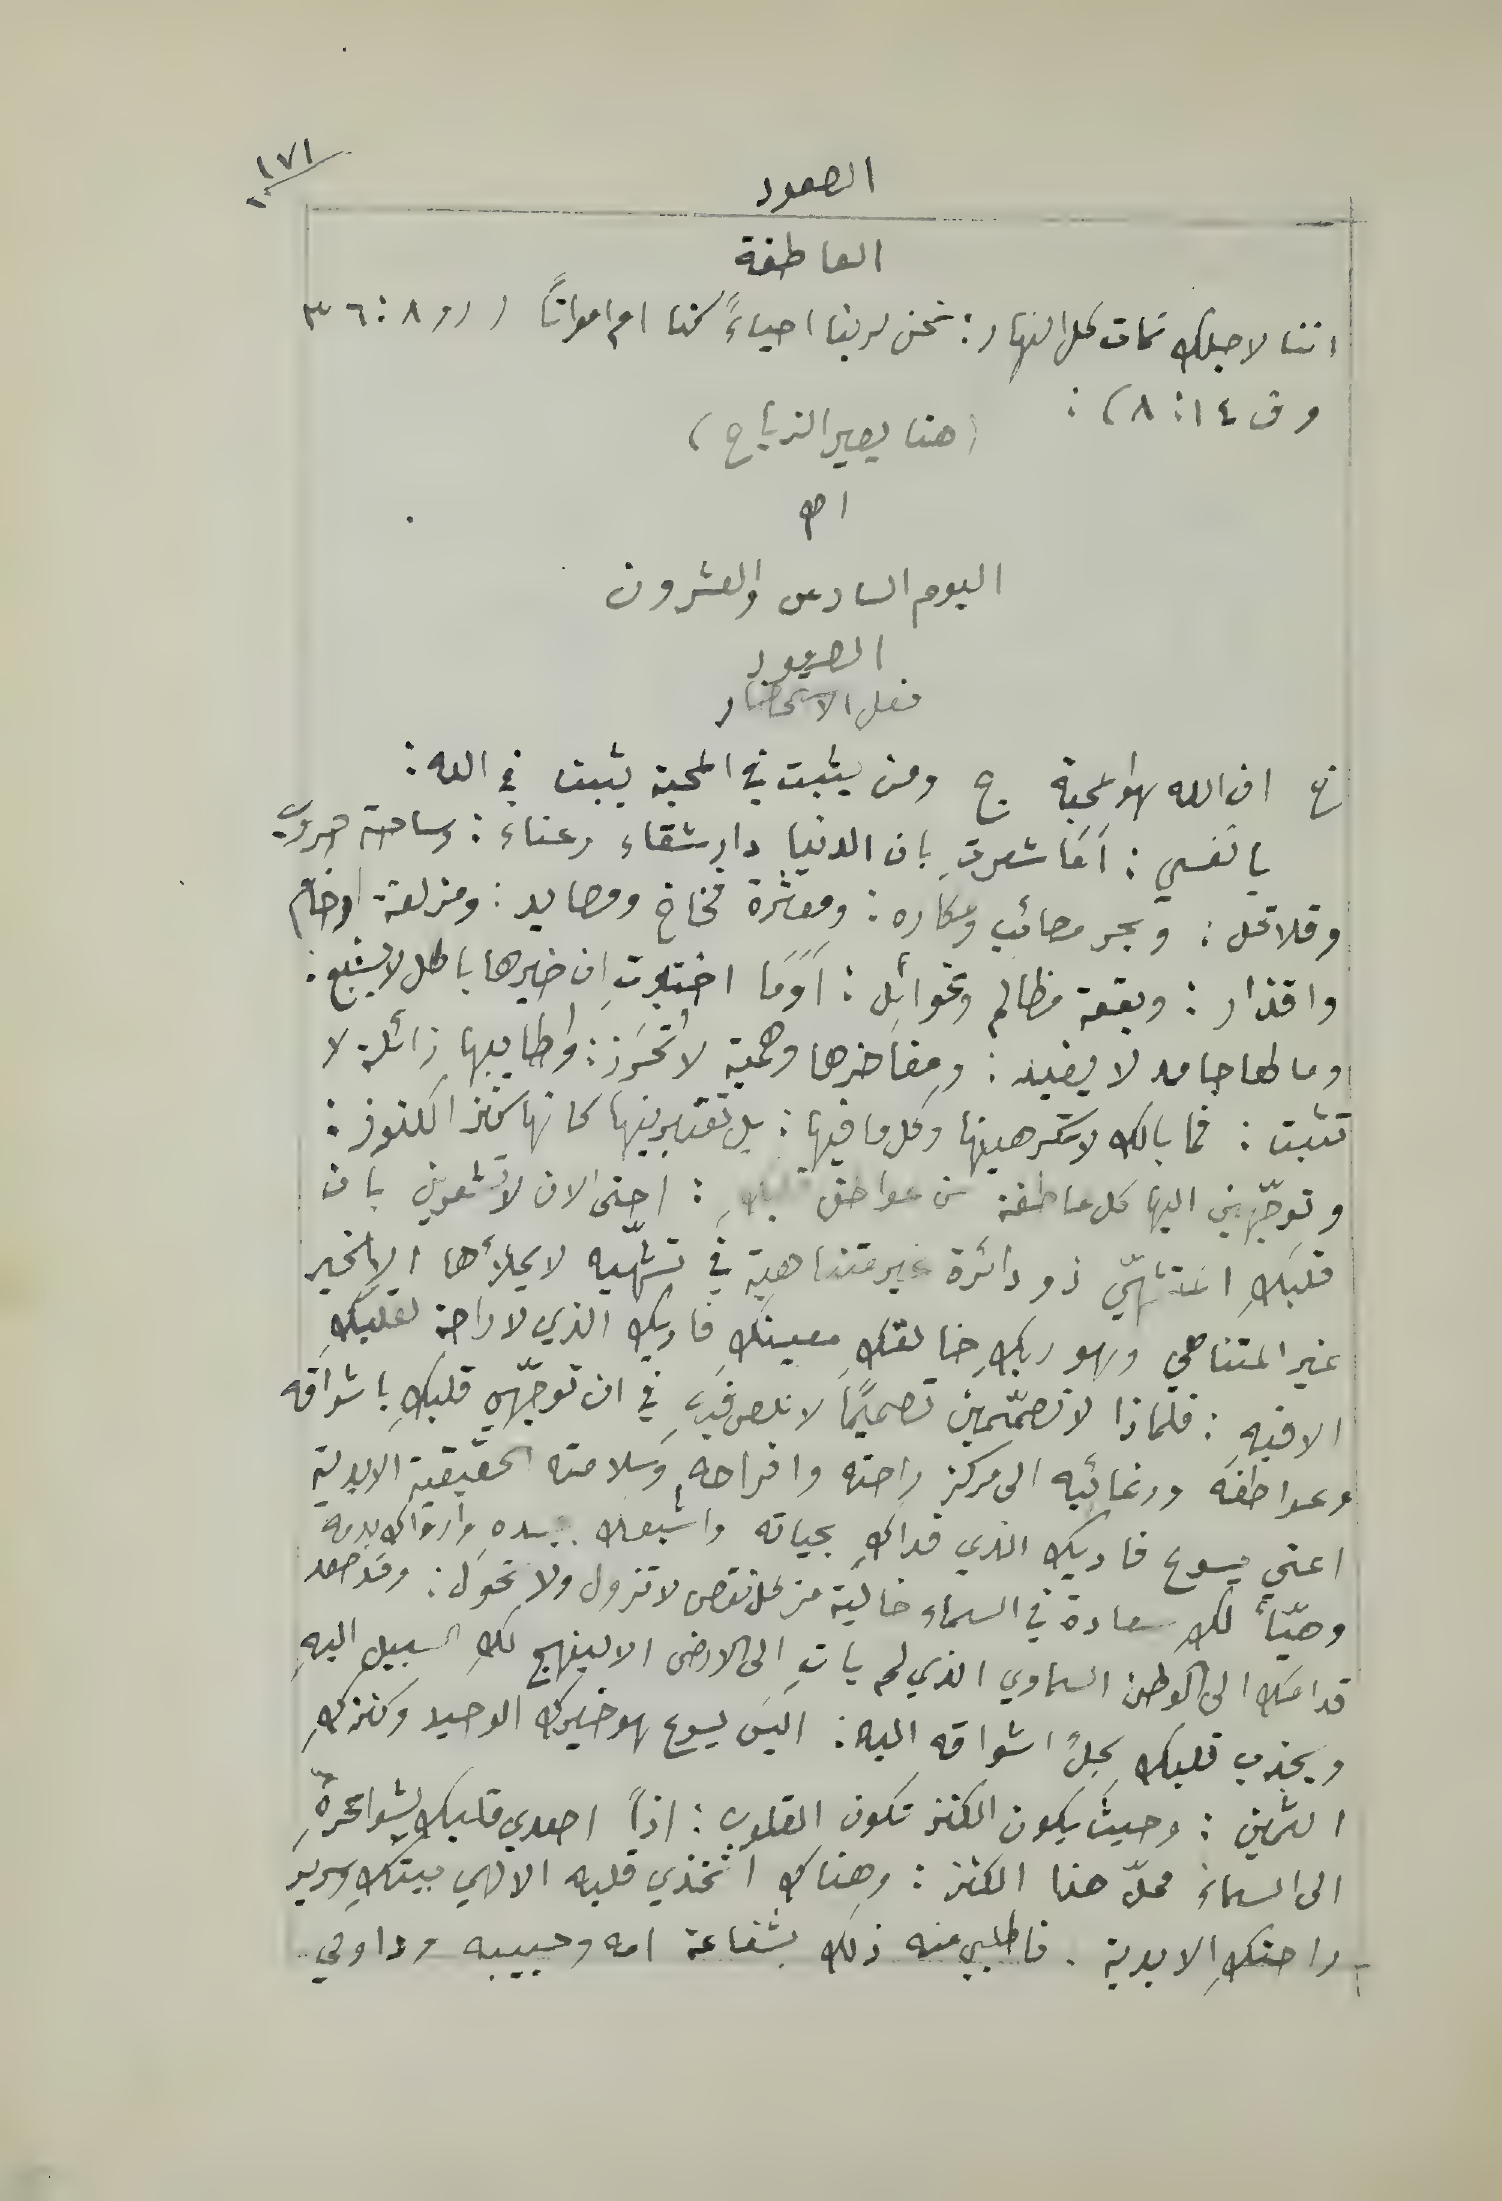 ١٧١
الصعود
العاطفة
اننا لاجلك نمات كل النهار: نحن لربنا احياءً كنا ام امواتاً (رو ٨: ٣٦
و ق ١٤: ٨):
(هنا يصير الزياح)
اه
اليوم السادس والعشرون
الصعود
فعل الاستحضار
خ ان الله هو المحبة ج ومن يثبت في المحبة يثبت في الله:
يا نفسي: اَمَا شعرتِ بان الدنيا دار شقاء وعناء: وساحة حروب
وقلاقل: وبحر مصائب ومكاره: ومعثرة فخاخ ومصايد: ومزلقة اوخام
واقذار: وبقعة مظالم وغوائل: اَوَمَا اختبرتِ ان خيرها باطل لا يشبع:
ومالها جامد لا يفيد: ومفاخرها وهمية لا تُحرَز: واطايبها زائلة لا
تثبت: فما بالك لا تكرهينها وكل ما فيها: بل تعتبرينها كانها كنز الكنوز:
وتوجّهين اليها كل عاطفة من عواطف قلبكِ: احتى الان لا تشعرين بان
قلبكِ ذو دائرة غير متناهية في تشهّيه لا يملأها الا الخير
غير المتناهي وهو ربكِ خالقكِ معينكِ فاديك الذي لا راحة لقلبكِ
الا فيهِ: فلماذا لا تصمّمين تصميمًا لا نكص فيهِ في ان توجّهي قلبكِ باشواقه
وعواطفه ورغائبه الى مركز راحته وافراحه وسلامته الحقيقية الابدية
اعني يسوع فاديك الذي فداكِ بحياته واشبعك بجسده وارواك بدمه
وهيّأ لكِ سعادة في السماء خالية من كل نقص لا تزول ولا تحول: وقد صعد
قدامكِ الى الوطن السماوي الذي لم ياتِ الى الارض الا لينهج لكِ السبيل اليهِ
ويجذب قلبك بكل اشواقه اليه: اليسَ يسوع هو خيرك الوحيد وكنزكِ
الثمين: وحيث يكون الكنز تكون القلوب: اذاً اصعدي قلبكِ
الى السماء محلّ هذا الكنز: وهناك اتخذي قلبه الالهي بيتكِ وسرير
راحتكِ الابدية. فاطلبي منه ذلك بشفاعة امه وحبيبه وداومي